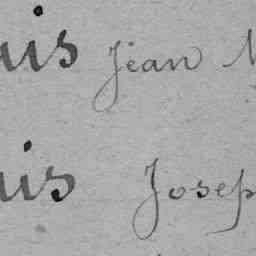 uis Jean M
uis Josep